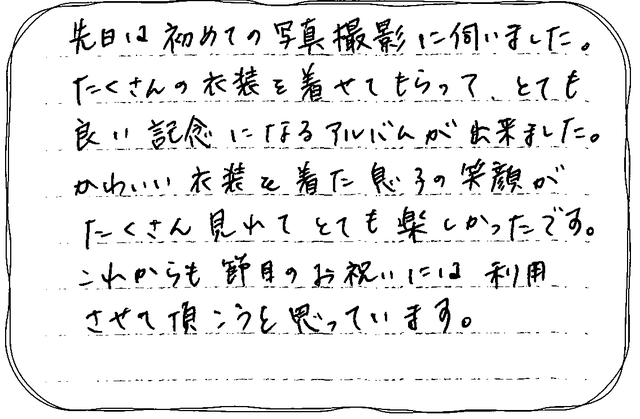 先日は初めての写真撮影に伺いました。
たくさんの衣装を着せてもらって、とても
良い記念になるアルバムが出来ました。
かわいい衣装を着た息子の笑顔が
たくさん見れてとても楽しかったです。
これからも節目のお祝いには利用
させて頂こうと思っています。